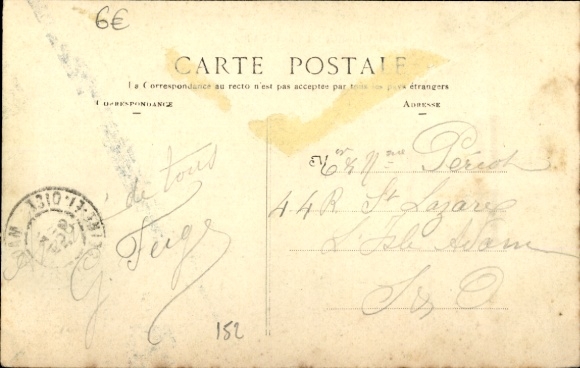 6€
CARTE POSTALE
La Correspondance au recto n'est pas acceptée par tous les pays étrangers
CORRESPONDANCE
ADRESSE
de tous
G. Fuge
M et Mme Périot
44 R St Lazare
L'Isle Adam
S & O
SEINE-ET-OISE
152